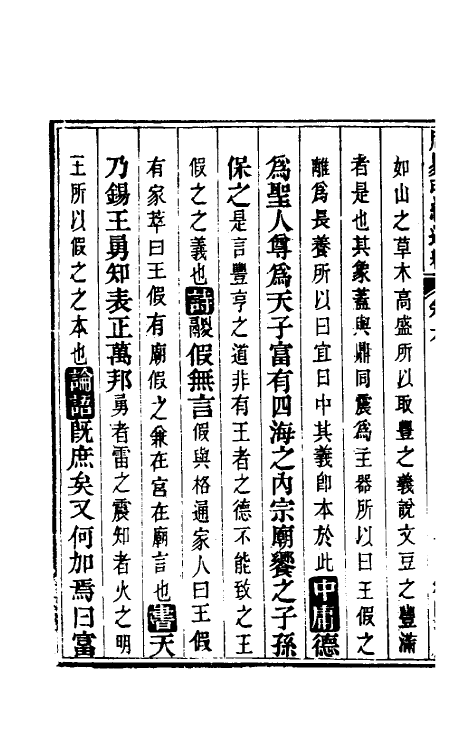 如山之草木高盛所以取豐之義說文豆之豐滿
者是也其象蓋與鼎同震爲主器所以曰王假之
離爲長養所以曰宜日中其義卽本於此中庸德
爲聖人尊爲天子富有四海之內宗廟饗之子孫
保之是言豐亨之道非有王者之德不能致之王
假之之義也詩鬷假無言假與格通家人曰王假
有家萃曰王假有廟假之兼在宮在廟言也書天
乃錫王勇知表正萬邦勇者雷之震知者火之明
王所以假之之本也論語旣庶矣又何加焉曰富